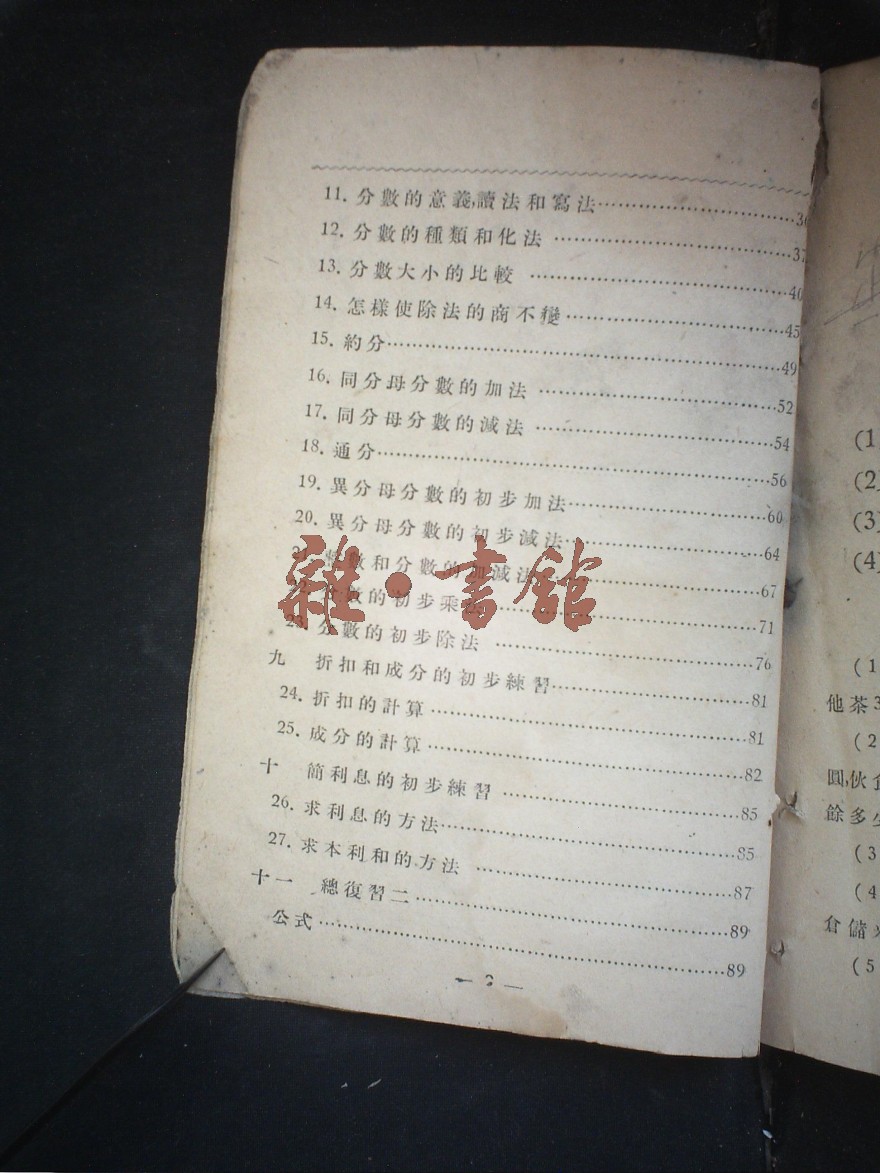 11. 分數的意義,讀法和寫法……………………36
12. 分數的種類和化法……………………37
13. 分數大小的比較……………………40
14. 怎樣使除法的商不變……………………45
15. 約分……………………49
16. 同分母分數的加法……………………52
17. 同分母分數的減法……………………54
18. 通分……………………56
19. 異分母分數的初步加法……………………60
20. 異分母分數的初步減法……………………64
21. 整數和分數的加減法……………………67
22. 分數的初步乘法……………………71
23. 分數的初步除法……………………76
九 折扣和成分的初步練習……………………81
24. 折扣的計算……………………81
25. 成分的計算……………………82
十 簡利息的初步練習……………………85
26. 求利息的方法……………………85
27. 求本利和的方法……………………87
十一 總復習二……………………89
公式……………………89
雜·書館
(1
(2)
(3)
(4)
(1
他茶3
(2
圓,伙食
餘多少
(3
(4
倉儲
(5